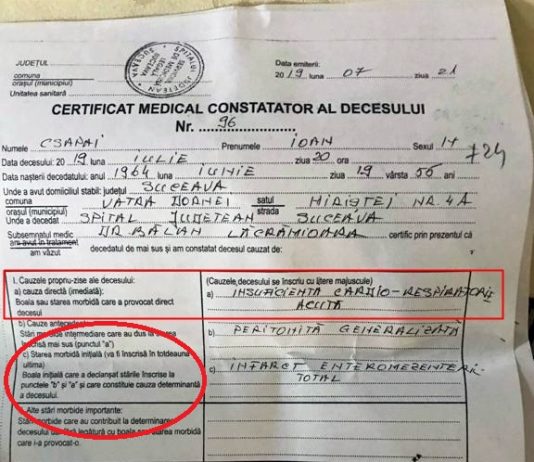 SPITALUL JUDETEAN SUCEAVA
SERVICIUL DE MEDICINA LEGALA
JUDEȚUL
comuna
orașul (municipiul)
Unitatea sanitară
Data emiterii:
2019 luna 07 ziua 21
CERTIFICAT MEDICAL CONSTATATOR AL DECESULUI
Nr. 96
Numele CSAPAI Prenumele IOAN Sexul
724
Data decesului: 2019 luna IULIE ziua 20 ora
Data nașterii decedatului: anul 1964 luna IUNIE ziua 19 vârsta 55 ani
Unde a avut domiciliul stabil: județul SUCEAVA
comuna VATRA DORNEI satul
orașul (municipiul) strada NR 4A
Unde a decedat SPITAL JUDETEAN SUCEAVA
Subsemnatul medic DR BALAN LACRAMIOARA certific prin prezentul că
am avut în tratament
am văzut
decedatul de mai sus și am constatat decesul cauzat de:
I. Cauzele propriu-zise ale decesului:
a) cauza directă (imediată):
Boala sau starea morbidă care a provocat direct
decesul
(Cauzele decesului se înscriu cu litere majuscule)
a) INSUFICIENTA CARDIO-RESPIRATORIE
ACUTA
b) Cauze antecedente
Stări morbide intermediare care au dus la starea
înscrisă mai sus (punctul "a")
b) PERITONITĂ GENERALIZATĂ
c) Starea morbidă inițială (va fi înscrisă în totdeauna
ultima)
Boala inițială care a declanșat stările înscrise la
punctele "b" și "a" și care constituie cauza determinantă
a decesului.
c) INFARCT ENTEROMEZENTERIC
TOTAL
Alte stări morbide importante:
Stări morbide care au contribuit la determinarea
decesului dar fără legătură cu boala sau starea morbidă
care i-a provocat-o.